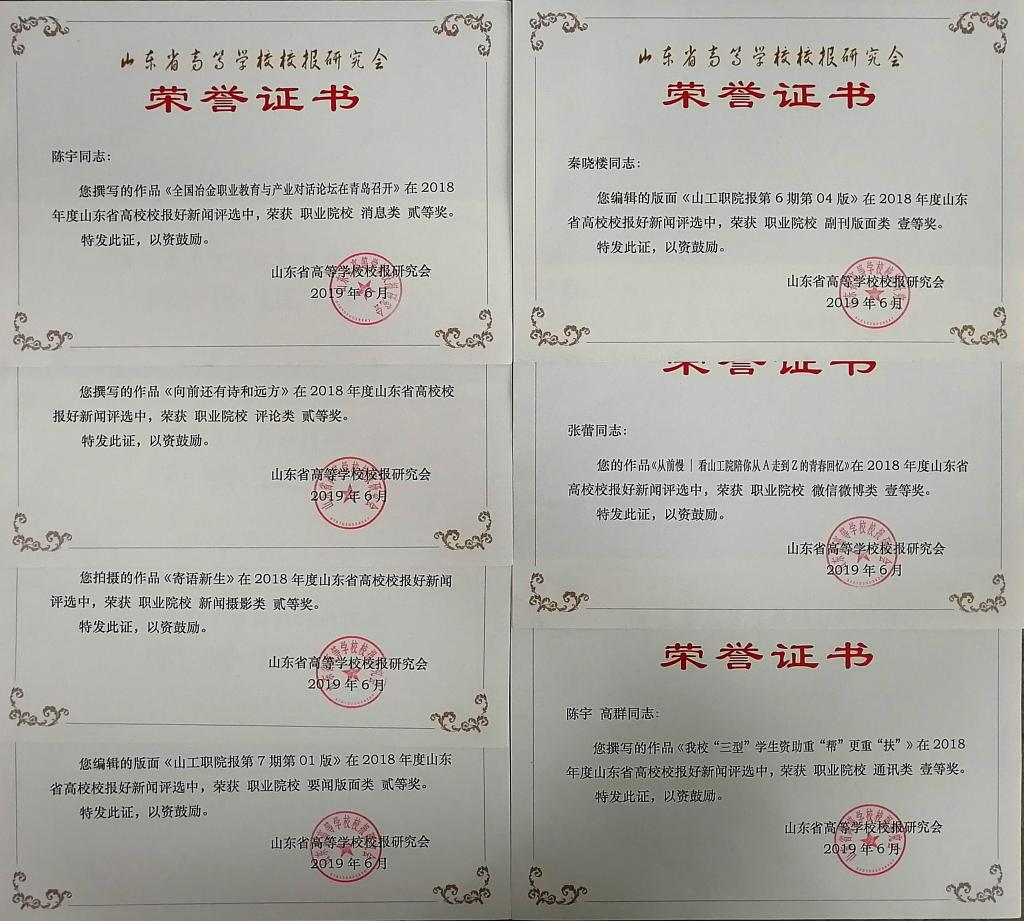 山东省高等学校校报研究会
荣誉证书
陈宇同志：
您撰写的作品《全国冶金职业教育与产业对话论坛在青岛召开》在 2018
年度山东省高校校报好新闻评选中，荣获 职业院校 消息类 贰等奖。
特发此证，以资鼓励。
山东省高等学校校报研究会
2019 年 6 月
您撰写的作品《向前还有诗和远方》在 2018 年度山东省高校校
报好新闻评选中，荣获 职业院校 评论类 贰等奖。
特发此证，以资鼓励。
山东省高等学校校报研究会
2019 年 6 月
您拍摄的作品《寄语新生》在 2018 年度山东省高校校报好新闻
评选中，荣获 职业院校 新闻摄影类 贰等奖。
特发此证，以资鼓励。
山东省高等学校校报研究会
2019 年 6 月
您编辑的版面《山工职院报第 7 期第 01 版》在 2018 年度山东
省高校校报好新闻评选中，荣获 职业院校 要闻版面类 贰等奖。
特发此证，以资鼓励。
山东省高等学校校报研究会
2019 年 6 月
山东省高等学校校报研究会
荣誉证书
秦晓楼同志：
您编辑的版面《山工职院报第 6 期第 04 版》在 2018 年度山东
省高校校报好新闻评选中，荣获 职业院校 副刊版面类 壹等奖。
特发此证，以资鼓励。
山东省高等学校校报研究会
2019 年 6 月
荣誉证书
张蕾同志：
您的作品《从前慢｜看山工院陪你从 A 走到 Z 的青春回忆》在 2018 年度山东省
高校校报好新闻评选中，荣获 职业院校 微信微博类 壹等奖。
特发此证，以资鼓励。
山东省高等学校校报研究会
2019 年 6 月
荣誉证书
陈宇 高群同志：
您撰写的作品《我校“三型”学生资助重“帮”更重“扶”》在 2018
年度山东省高校校报好新闻评选中，荣获 职业院校 通讯类 壹等奖。
特发此证，以资鼓励。
山东省高等学校校报研究会
2019 年 6 月